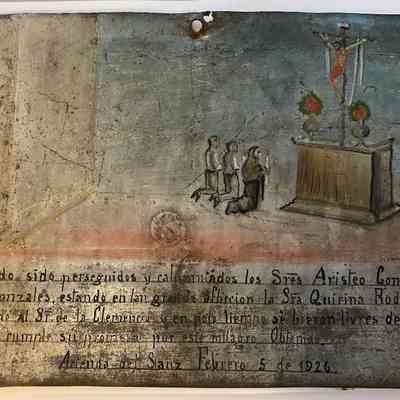 do sido perseguidos y calumniados los Sres Aristeo Gon
onzales, estando en tan grande afliccion la Sra Quirina Rod
do al Sr de la Clemencia y en poco tiempo se bieron livres de
cumple su promesa por este milagro Obtenido.
Acienda del Sanz Febrero 5 de 1926.